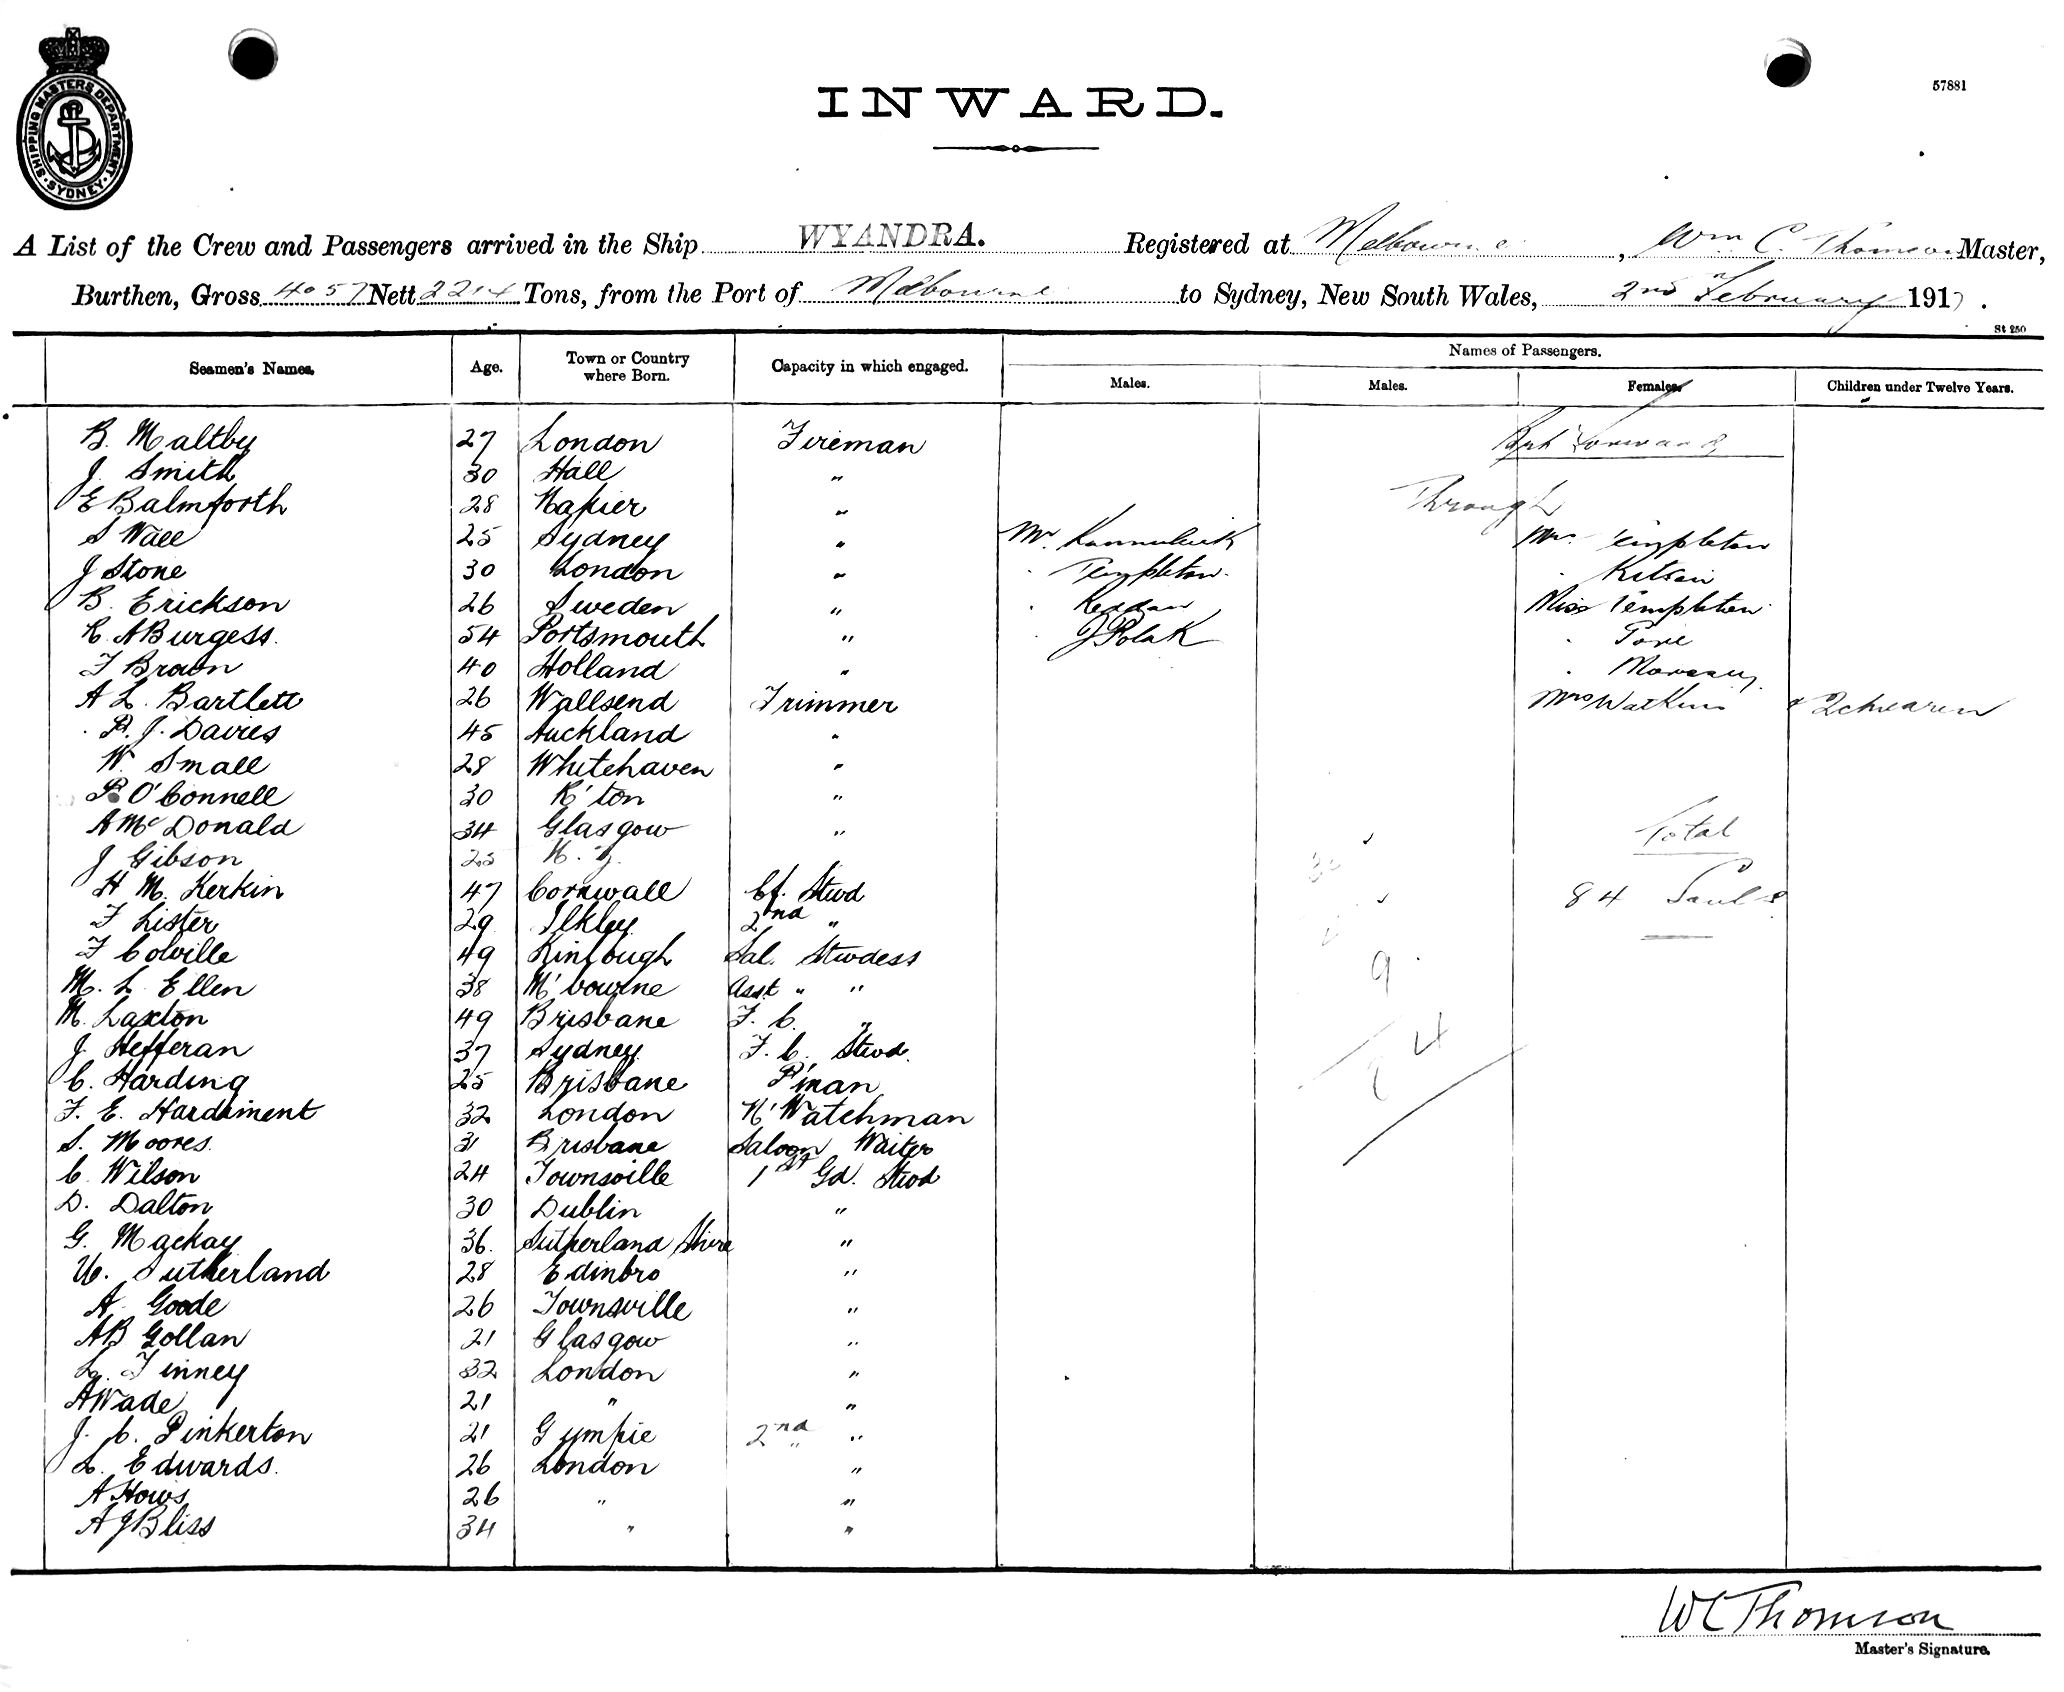 SHIPPING MASTERS DEPARTMENT. SYDNEY.
57881
INWARD.
A List of the Crew and Passengers arrived in the Ship WYANDRA. Registered at Melbourne, Wm C. Thomson Master,
Burthen, Gross 4057 Nett 2214 Tons, from the Port of Melbourne to Sydney, New South Wales, 2nd February 1917.
St 250
Seamen's Names. Age. Town or Country where Born. Capacity in which engaged. Names of Passengers.
Males. Males. Females. Children under Twelve Years.
B. Maltby 27 London Fireman Forward
J. Smith 30 Hull "
E Balmforth 28 Napier " Through
S Wall 25 Sydney " Mr. Mrs. Templeton
J Stone 30 London " . Templeton .
B. Erickson 26 Sweden " . Miss Templeton
R. A Burgess. 54 Portsmouth " . J Polak .
F Braun 40 Holland " .
A L. Bartlett 26 Wallsend Trimmer Mrs Watkins & 2 children
P. J. Davies 45 Auckland "
W. Small 28 Whitehaven "
P O'Connell 30 R'ton "
A McDonald 34 Glasgow " Total
J Gibson 25 N. Z.
H M. Kerkin 47 Cornwall Cf. Stwd 84 Souls
F Lister 29 Ilkley 2nd "
F Colville 49 Sal. Stwdess 9
M. L. Ellen 38 M'bourne Asst " "
M. Laxton 49 Brisbane F. C. "
J Hefferan 37 Sydney F. C. Stwd.
C. Harding 25 Brisbane P'man
F. E. Hardiment 32 London N'Watchman
S. Moores. 31 Brisbane Saloon Waiter
C. Wilson 24 Townsville 1st Gd. Stwd
D. Dalton 30 Dublin "
G. Mackay 36. Sutherland Shire "
W. Sutherland 28 Edinbro "
A. Goode 26 Townsville "
A B Gollan 21 Glasgow "
L. Finney 32 London "
A Wade 21 " "
J. C. Pinkerton 21 Gympie 2nd "
L. Edwards. 26 London "
A Hows 26 " "
A J Bliss 34 " "
W C Thomson
Master's Signature.